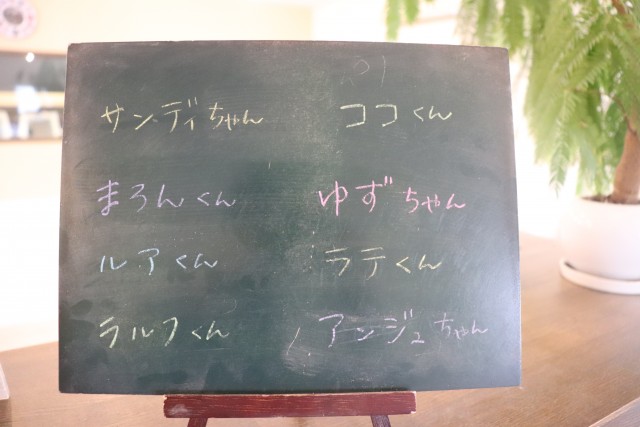 サンディちゃん
ココくん
まろんくん
ゆずちゃん
ルアくん
ラテくん
ラルフくん
アンジュちゃん